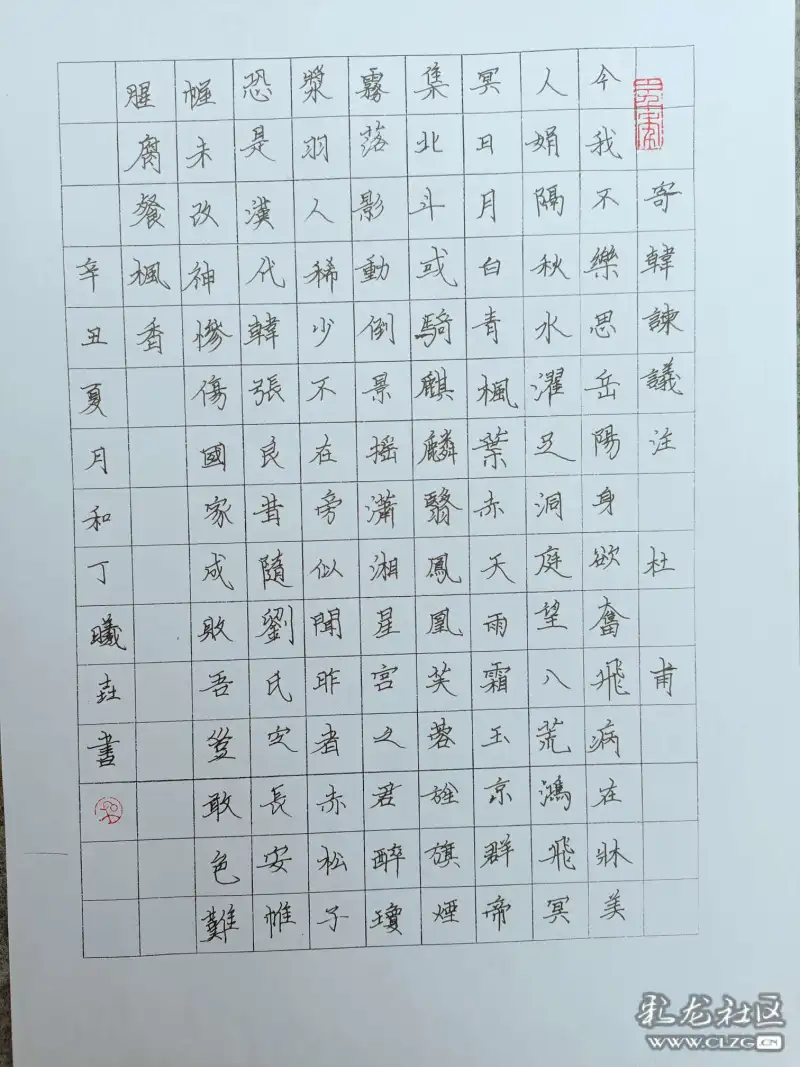 寄韓諫議注 杜甫
今我不樂思岳陽身欲奮飛病在牀美
人娟隔秋水濯足洞庭望八荒鴻飛冥
冥日月白青楓葉赤天雨霜玉京群帝
集北斗或騎麒麟翳鳳凰芙蓉旌旗煙
霧落影動倒景摇瀟湘星宮之君醉瓊
漿羽人稀少不在旁似聞昨者赤松子
恐是漢代韓張良昔隨劉氏定長安帷
幄未改神慘傷國家成敗吾豈敢色難
腥腐餐楓香
辛丑夏月和丁曦垚書
彩龙社区
WWW.CLZG.CN